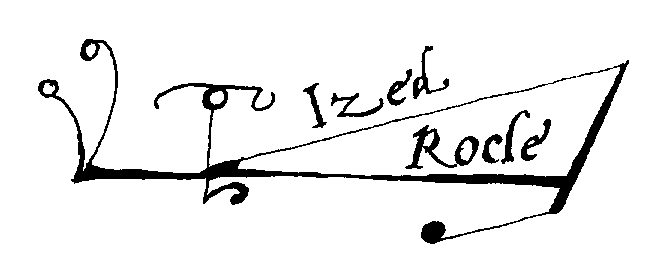 Ized
Rocle